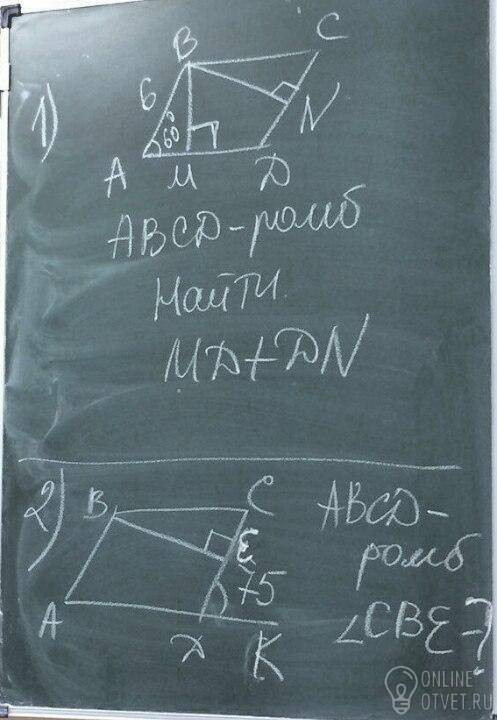 1)
B
C
6
60°
N
A
M
D
ABCD-ромб
Найти
MD+DN
2)
B
C
E
75
A
D
K
ABCD-
ромб
∠CBE-?
ONLINE
OTVET.RU